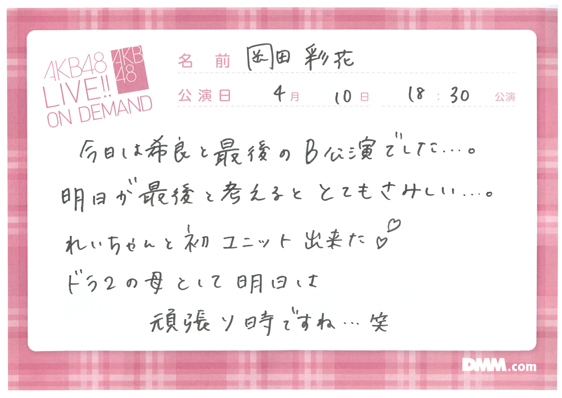 AKB48
LIVE!!
ON DEMAND
AKB
48
名前 岡田彩花
公演日 4月 10日 18:30 公演
今日は希良と最後のB公演でした…。
明日が最後と考えるととてもさみしい…。
れいちゃんと初ユニット出来た♡♡
ドラ2の母として明日は
頑張り時ですね…笑
DMM.com